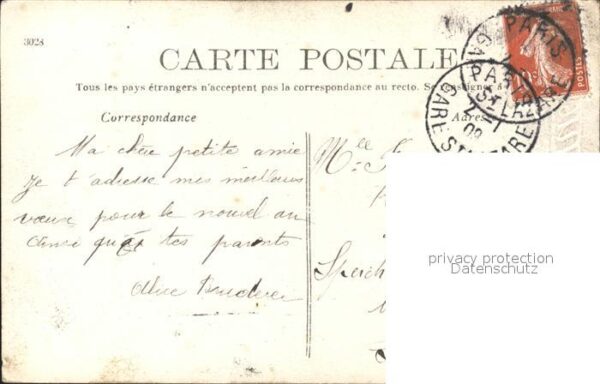 3028
CARTE POSTALE
Tous les pays étrangers n'acceptent pas la correspondance au recto. Se
Correspondance
Adres
PARIS
PARIS
St LAZARE
2-1
09
GARE St LAZARE
POSTES
Ma chère petite amie
Je t'adresse mes meilleurs
vœux pour le nouvel an
ainsi qu'à tes parents
Alice
Mlle
Speich
privacy protection
Datenschutz